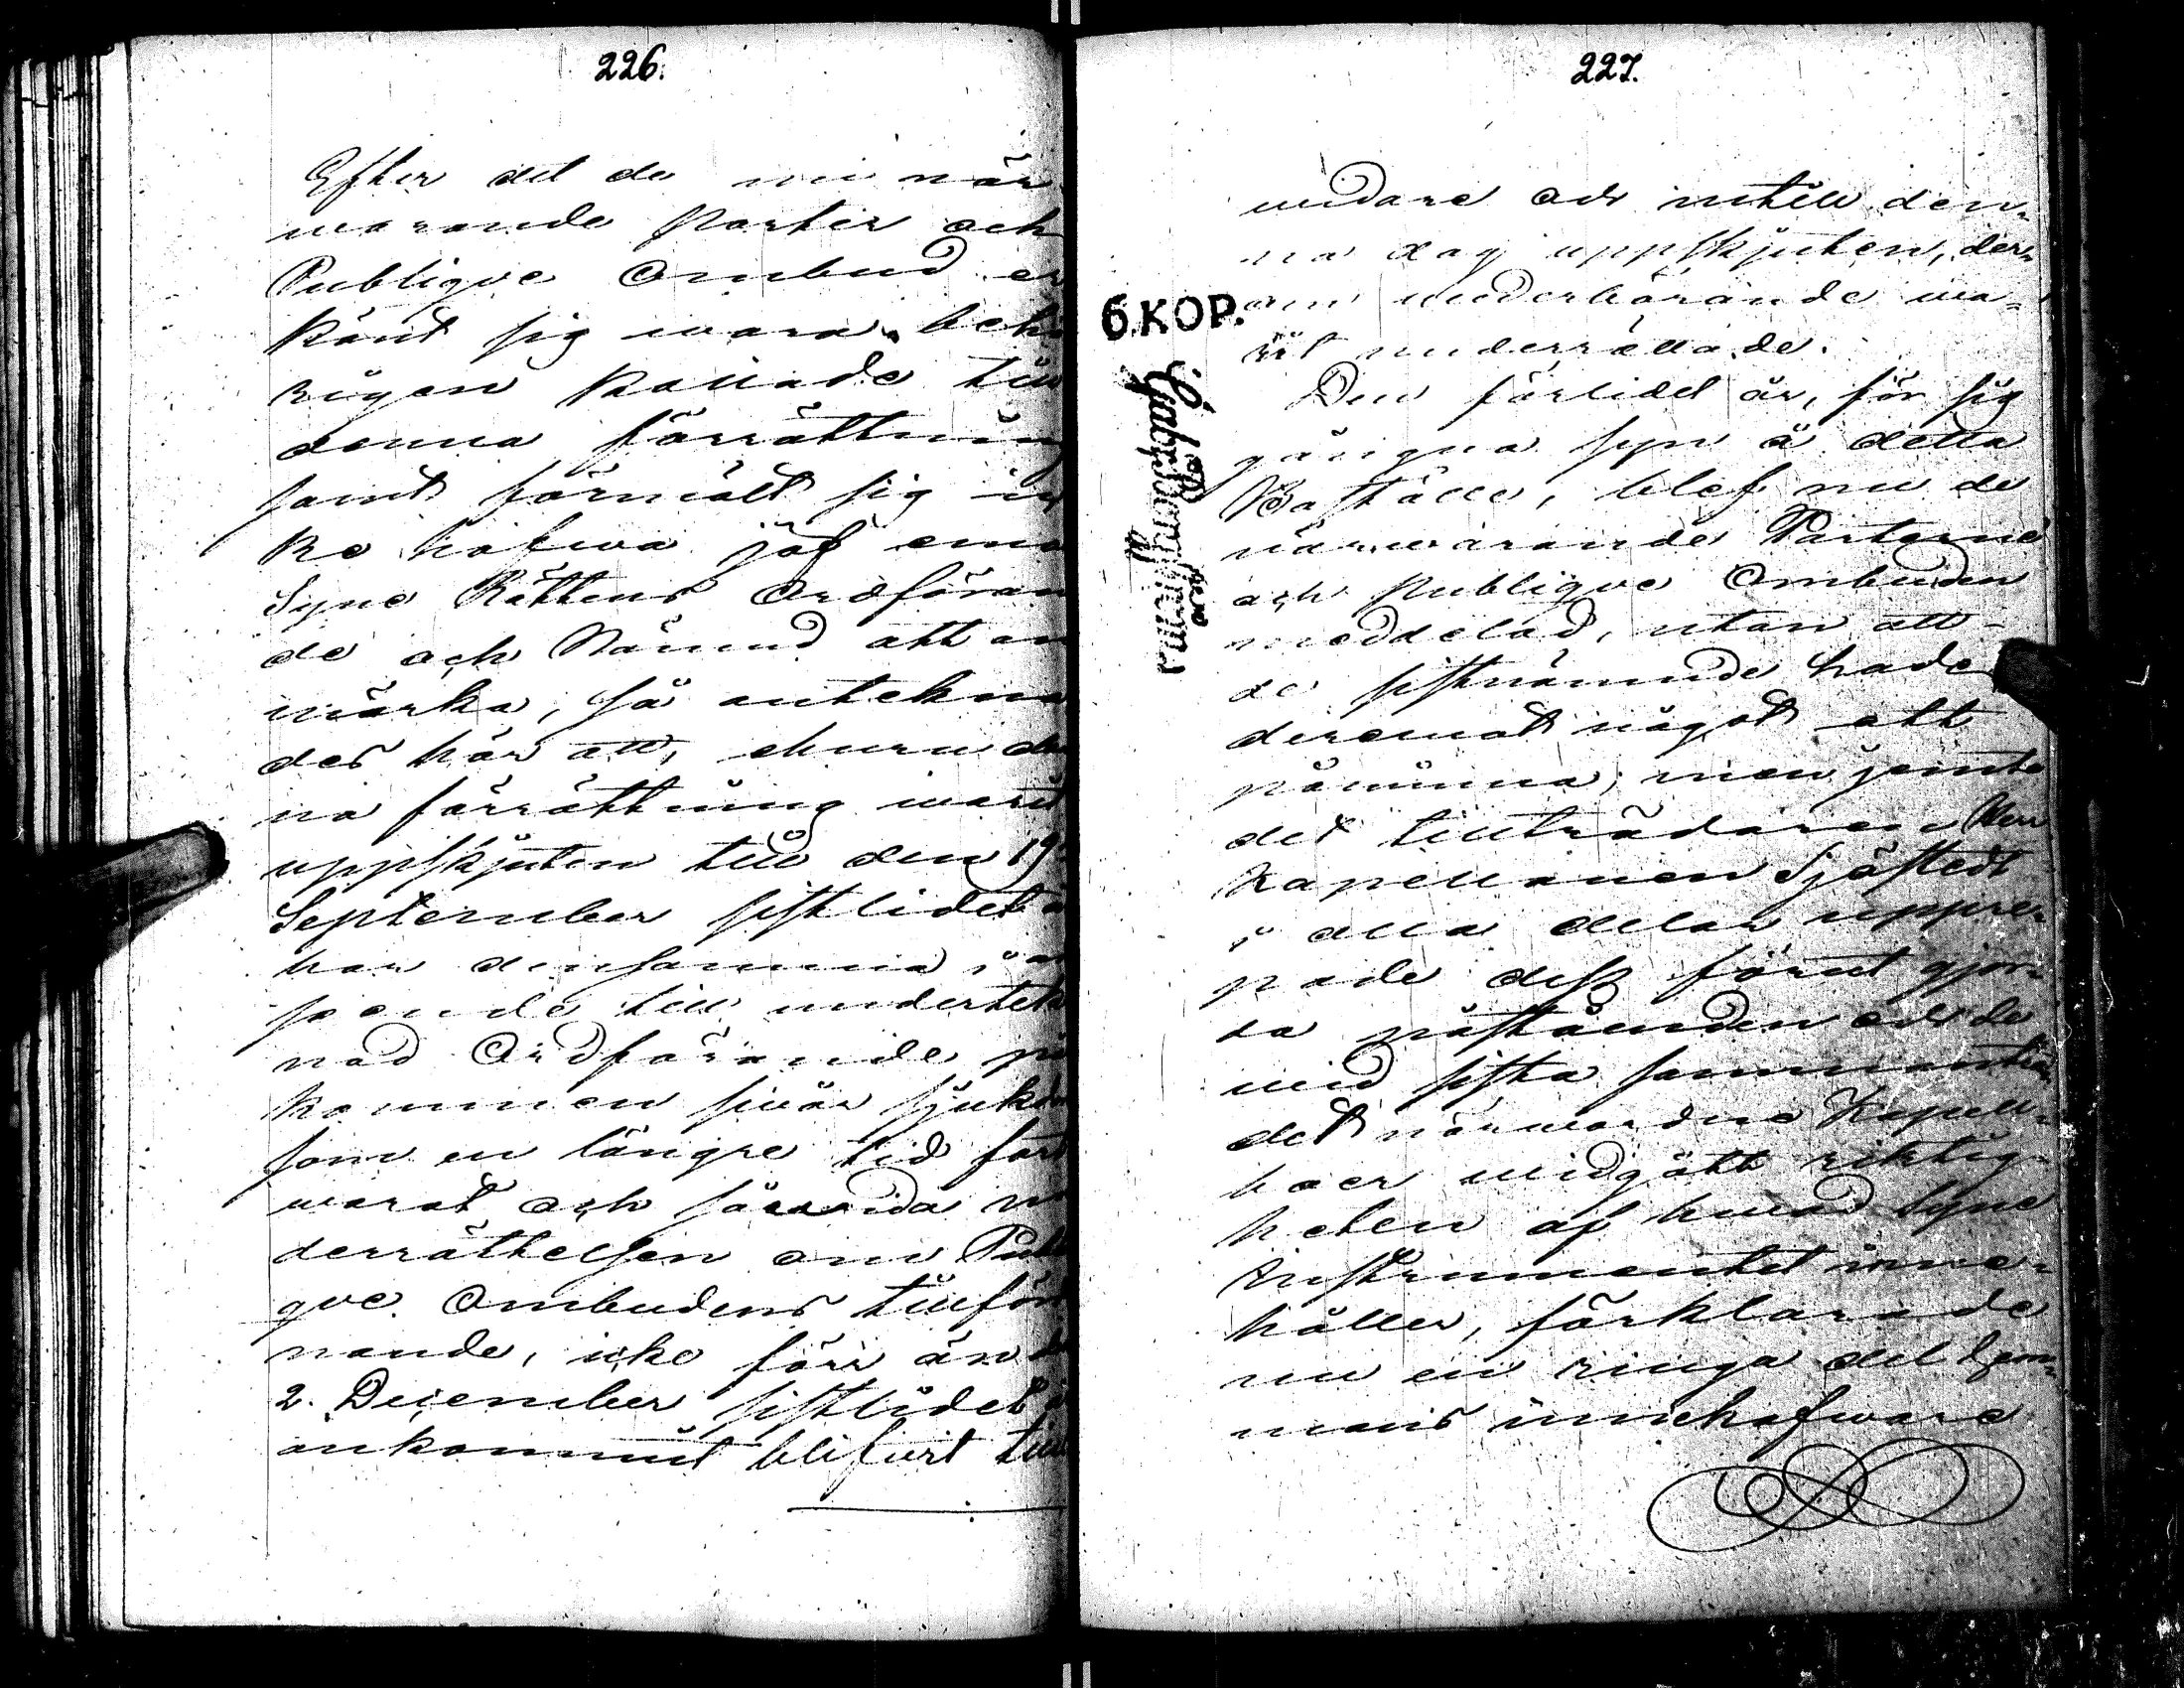 226.
Efter det de nu när
warande Parter och
Publiqve Ombud er
känt sig wara behö
rigen kallade till
denna förrättning
samt förmält sig in
ke hafwa jäf emot
Syne Rättens Ordföran
de och Nämnd att an
märka, så antekna
des här att, ehuru den
na förrättning warit
uppskjuten till den 19
September sistlidet å
har densamma i an
seende till undertek
nad Ordförande på
kommen swår sjukdom
som en längre tid fort
warat och sär un
derrättelsen om Publi
qve Ombudens tillför
nande, icke förr än d
2. December sistlidet å
ankommit blifwit till
227.
widare och intill den-
na dag uppskjuten, der-
om wederbörande wa-
rit underrättade.
Den förlidet år, för sig
gångna syn å detta
Boställe, blef nu de
närwarande Parterne
och Publiqve Ombuden
meddelad, utan att
de sistnämnde hade
deremot något att
påminna; men jemte
det tillträdaren Herr
Kapellanen Sjöstedt
i alla delar uppre-
pade dess förut gjor-
da påståenden och de
wid sista sammanträ-
det närwarande Kapell-
boer widgått riktig-
heten af hwad Syne
Instrumentet inne-
håller, förklarade
nu en ringa del Hem-
mans innehafware
6.KOP.